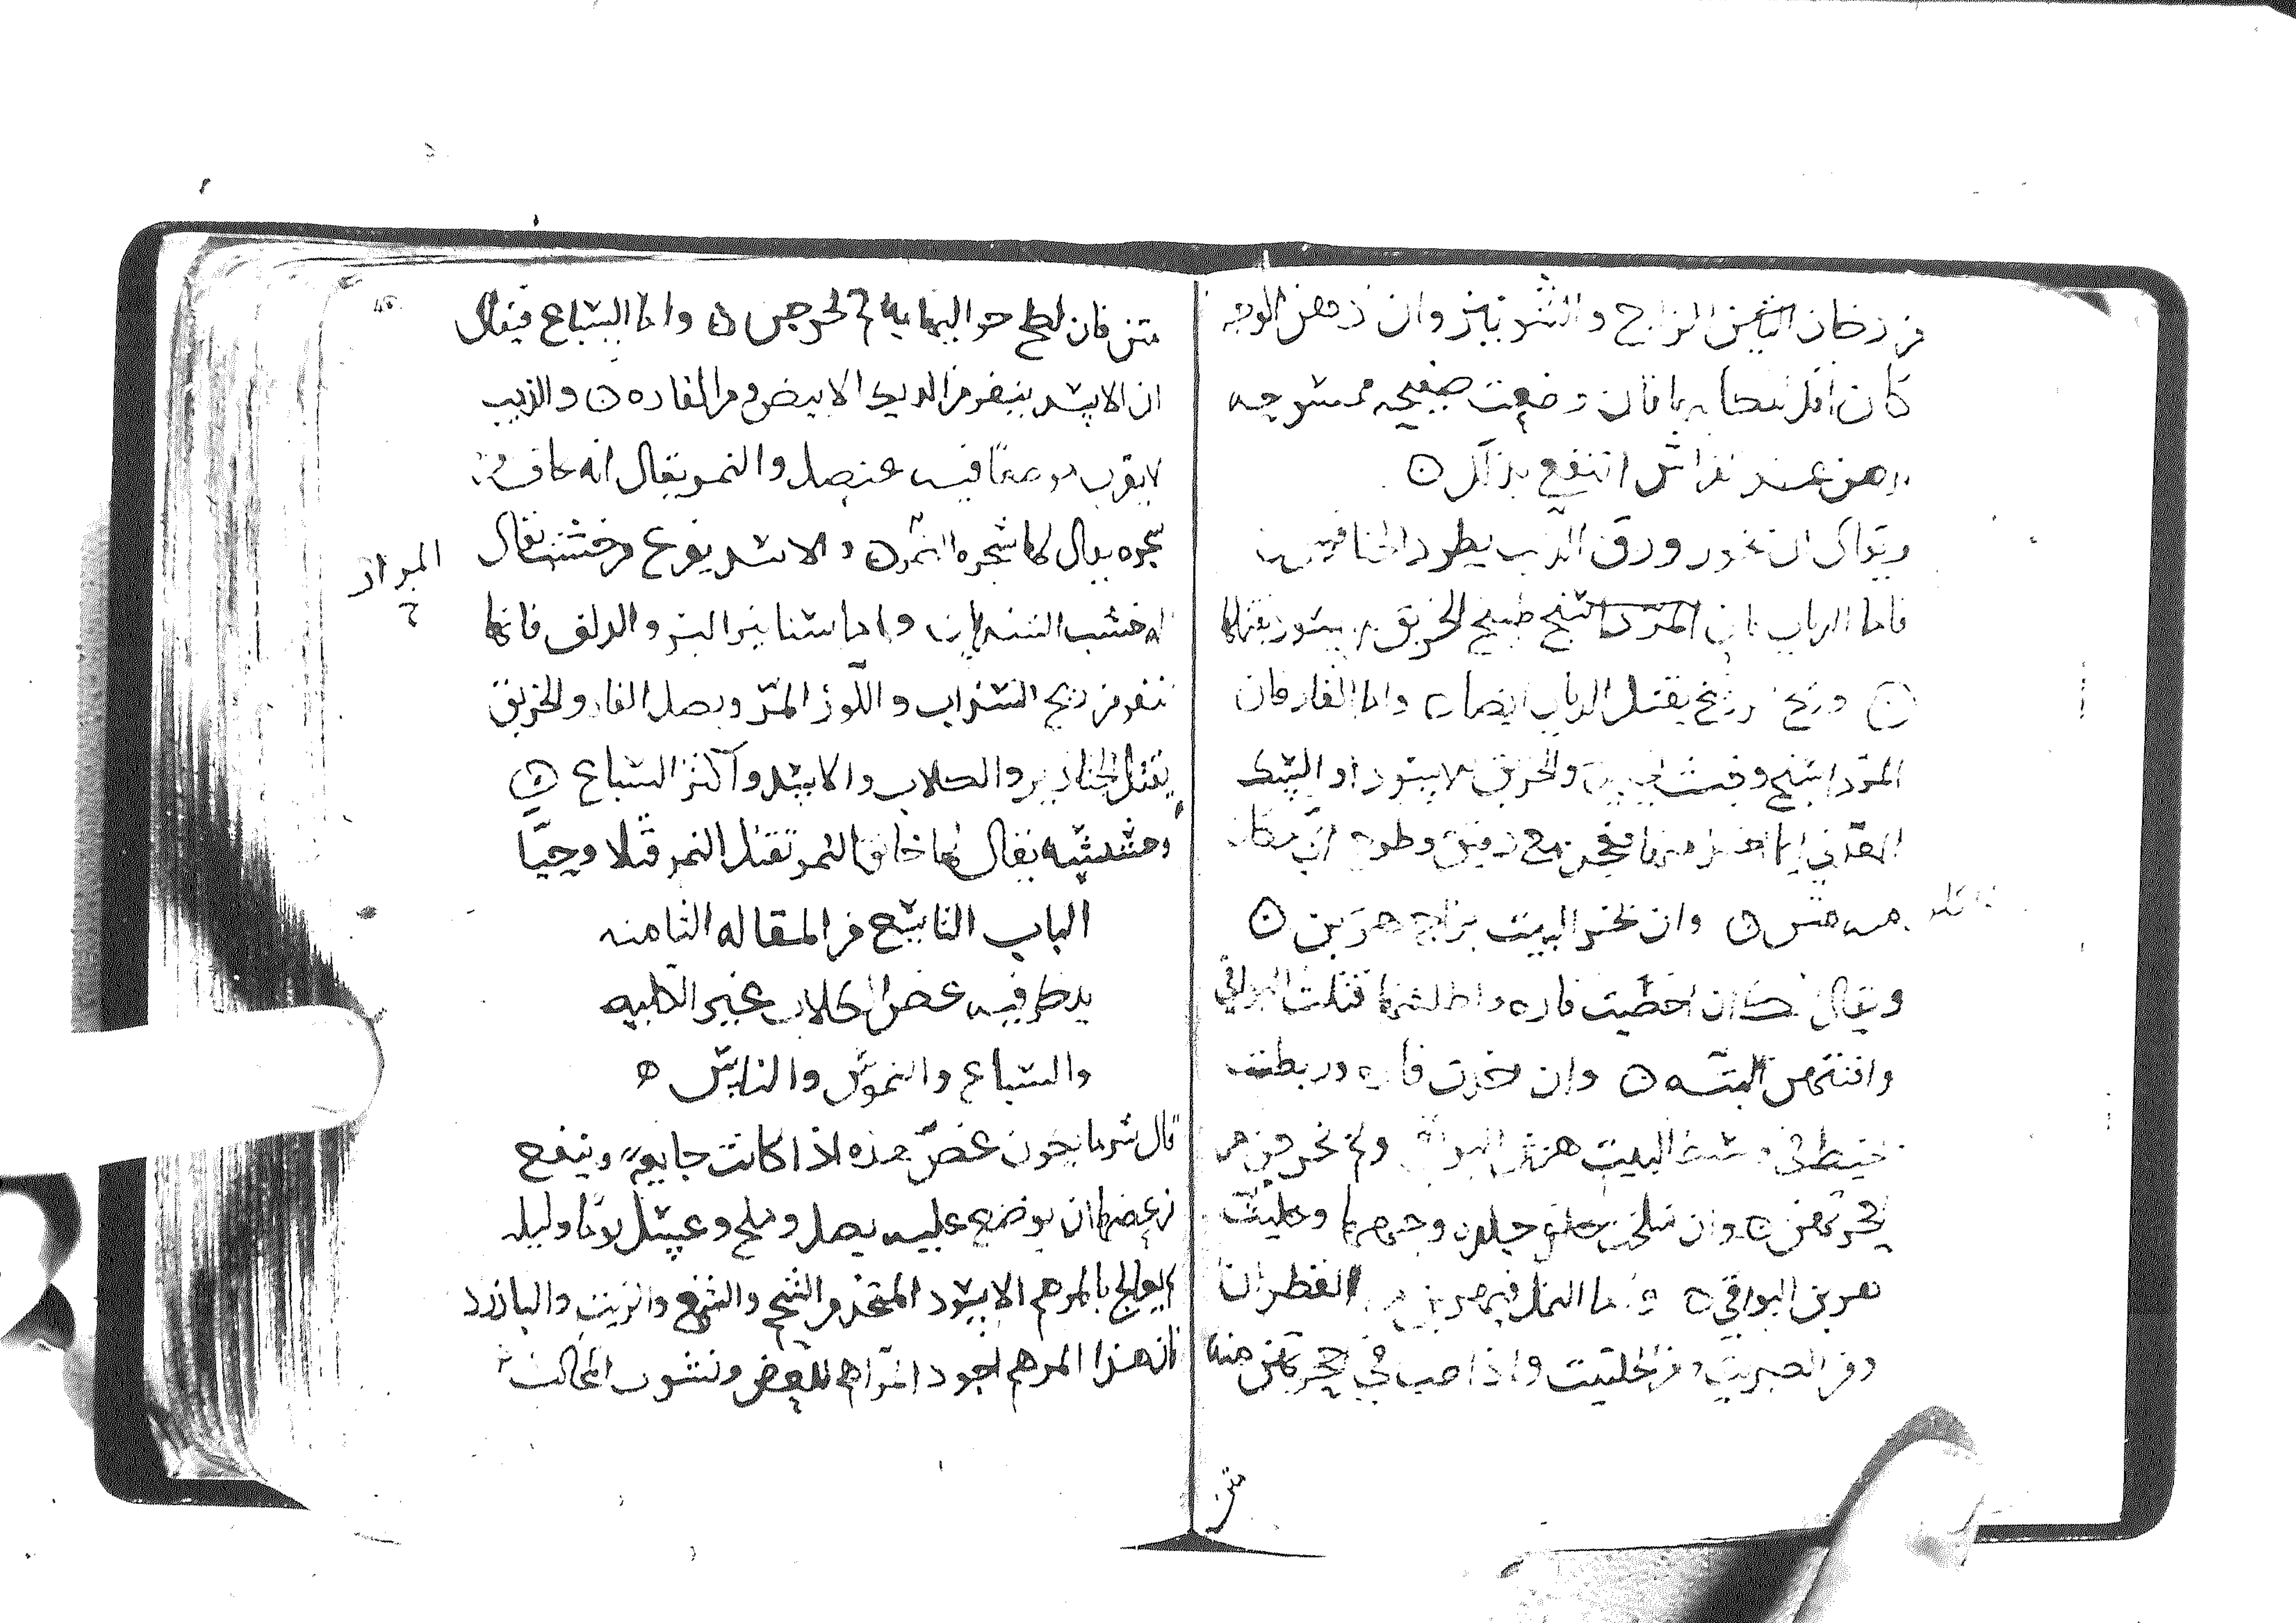 من دخان التين الزاج والشونيز وان دهن الوجه
كان اقل نكايه فان وضعت صفيحه ممسوحه
دهن عند فراش انتفع بذلك ○
ويقال ان بخور ورق الدب يطرد الخنافس
فاما الذباب فان المرداسنج طبيخ الخربق الاسود يقتلها
○ وريح الزرنيخ يقتل الذباب ايضا ○ واما الفار فان
المرداسنج وخبث الحديد والخربق الاسود او الشك
المعدني ايما اخذ منها فعجن مع دقيق وطرح اي مكان
منه متن ○ وان بخر البيت بزاج هربن ○
ويقال انك ان اخصيت فاره واطلقتها قتلت البواقي
وافنتهن البته ○ وان اخذت فاره وربطت
بخيط في وسط البيت هربن البواقي ولم يخرجن من
اجحرتهن ○ وان سلخت جلده وجهها وخليت
هربن البواقي ○ واما النمل فيهربن من القطران
ومن الكبريت ومن الحلتيت واذا صب في اجحرتهن منه
متن
متن فان لطخ حواليها به لم يخرجن ○ واما السباع فيقال
ان الاسد ينفر من الديك الابيض ومن الفاره ○ والذيب
لا يقرب موضعا فيه عنصل والنمر يقال انه يخاف من
شجره يقال لها شجره النمر ○ والاسد يفزع من خشب يقال
المران
له خشب السنديان واما سنانير البر والدلق فانها
تنفر من ريح السذاب واللوز المر وبصل الفار والخربق
يقتل الخنازير والكلاب والاسد واكثر السباع ○
وحشيشه يقال لها خانق النمر تقتل النمر قتلا وحيا
الباب التاسع من المقاله الثامنه
يذكر فيه عض الكلاب غير الكلبه
والسباع والنموس والناس ه
قال شر ما يكون عض هذه اذا كانت جايعه وينفع
من عضها ان يوضع عليه بصل وملح وعسل يوما وليله
ثم يعالج بالمرهم الاسود المتخذ من الشحم والشمع والزيت والبازرد
فان هذا المرهم اجود المراهم للعض ونشوب المخاليب